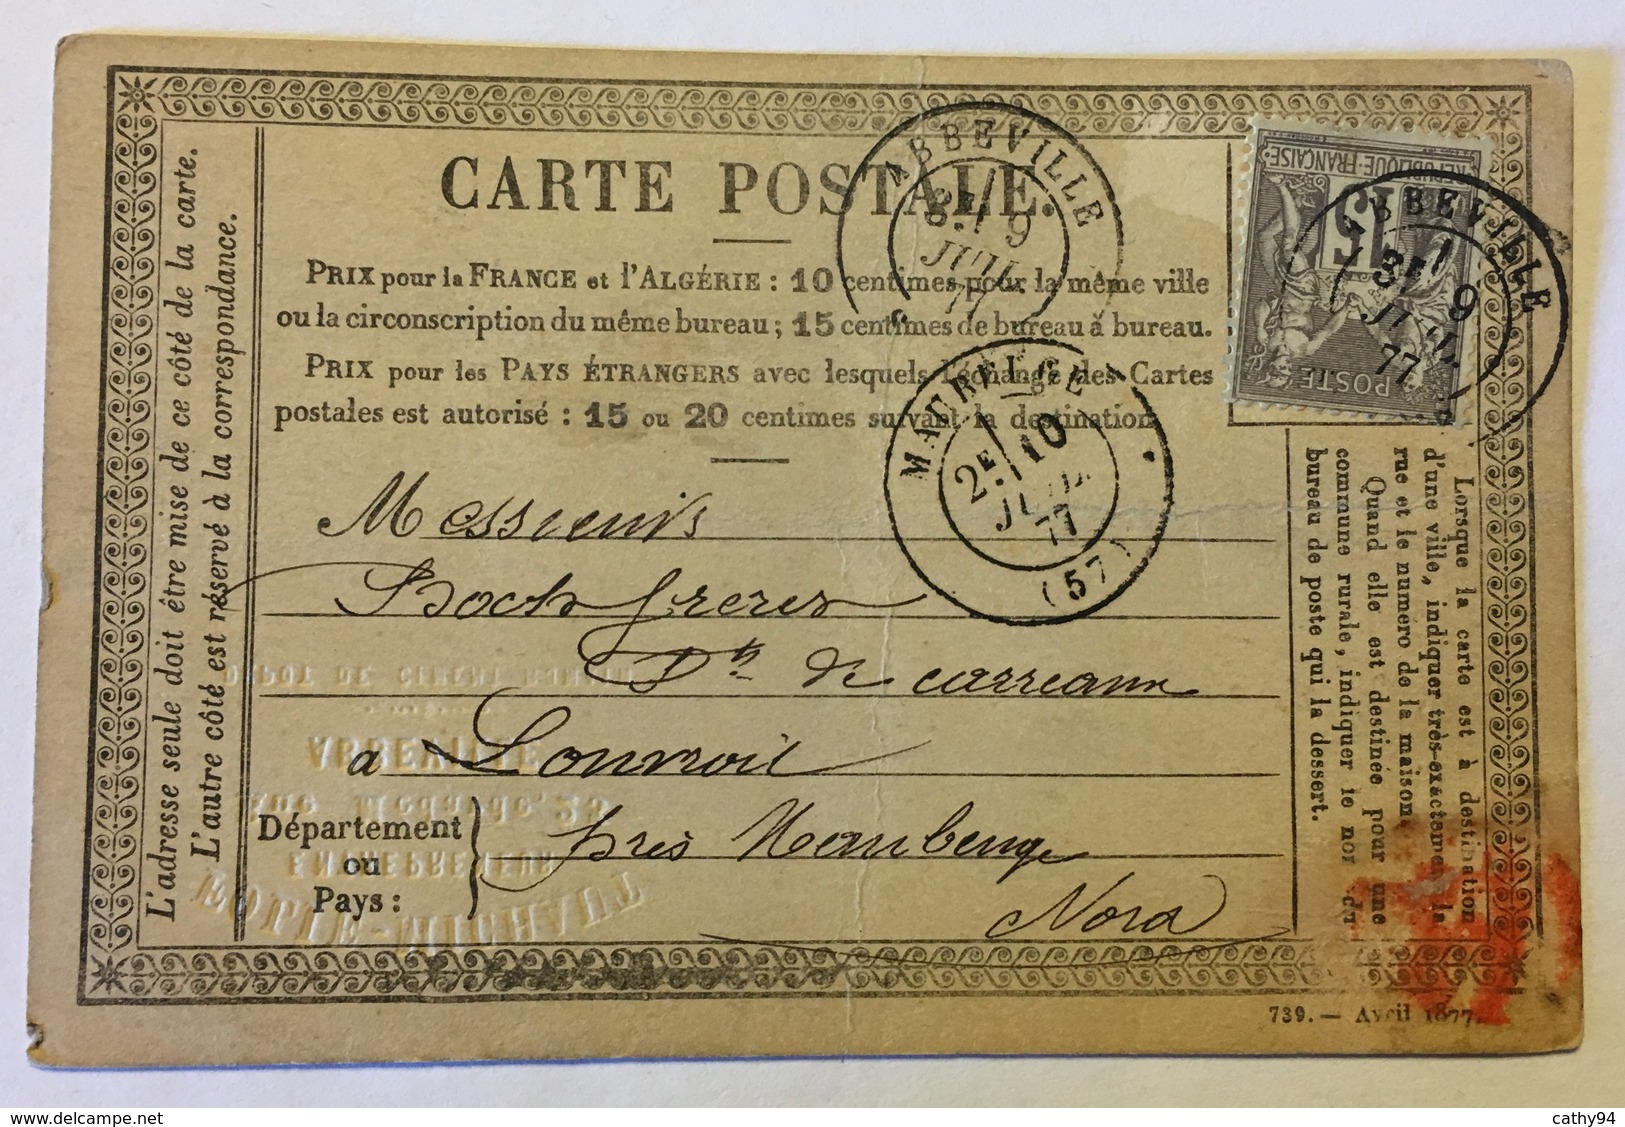 CARTE POSTALE.
PRIX pour la FRANCE et l'ALGÉRIE : 10 centimes pour la même ville
ou la circonscription du même bureau ; 15 centimes de bureau à bureau.
PRIX pour les PAYS ÉTRANGERS avec lesquels l'échange des Cartes
postales est autorisé : 15 ou 20 centimes suivant la destination
L'adresse seule doit être mise de ce côté de la carte.
L'autre côté est réservé à la correspondance.
ABBEVILLE
3E 9
JUIL
77
REPUBLIQUE FRANÇAISE
15
POSTE
ABBEVILLE
3E 9
JUIL
77
MAUBEUGE
2E 10
JUIL
77
(57)
Messieurs
Boch frères
Dt de carreaux
a Louvroil
Département
ou
Pays :
près Maubeuge
Nord
Lorsque la carte est à destination
d'une ville, indiquer très-exactement la
rue et le numéro de la maison.
Quand elle est destinée pour une
commune rurale, indiquer le nom du
bureau de poste qui la dessert.
DEPOT DE CIMENT ROMAIN
ABBEVILLE
Rue Médarde, 23
ENTREPRENEUR
739. — Avril 1877.
cathy94